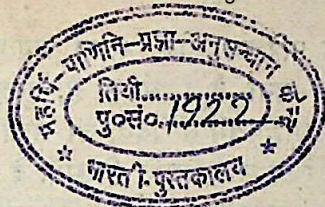 महर्षि-पाणिनि-प्रज्ञा-अनुसन्धान
तिथी..................
पु०सं० 1922
* भारती-पुस्तकालय *